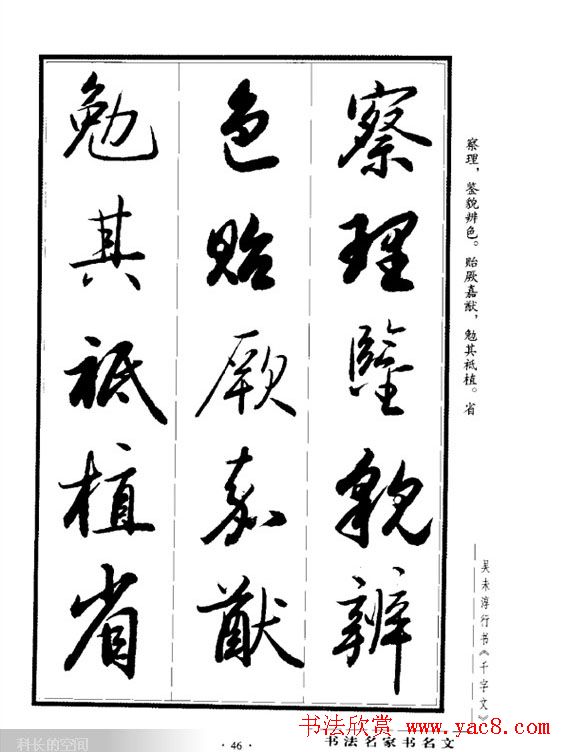 察理鑒貌辨
色貽厥嘉猷
勉其祗植省
察理，鉴貌辨色。贻厥嘉猷，勉其祗植。省
吴未淳行书《千字文》
书法欣赏 www.yac8.com
·46·
书法名家书名文
科长的空间